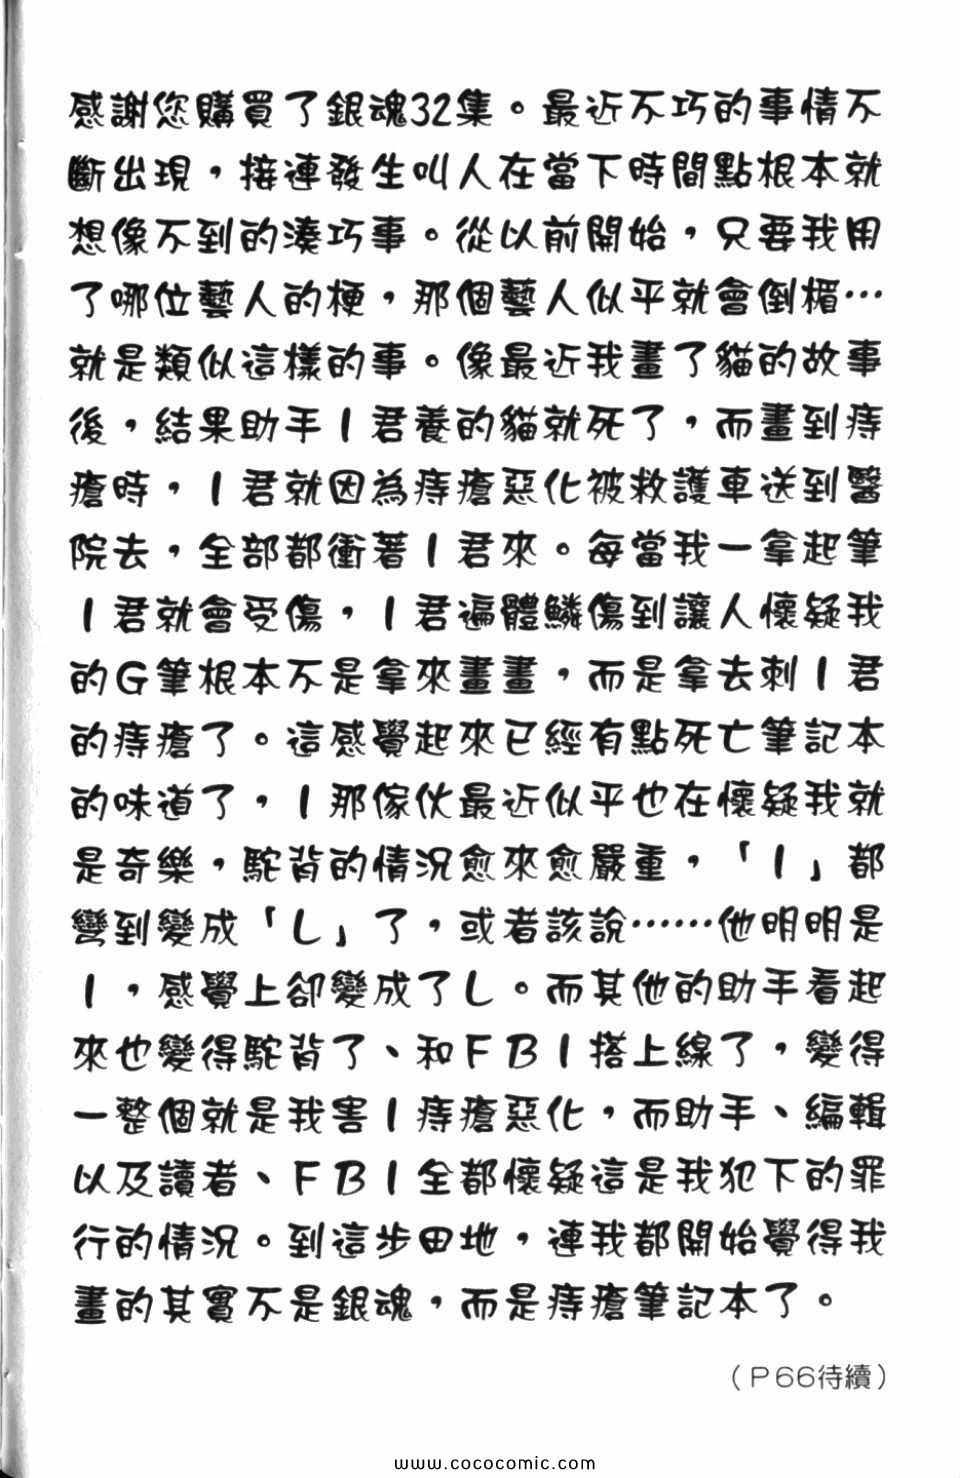 感謝您購買了銀魂32集。最近不巧的事情不
斷出現，接連發生叫人在當下時間點根本就
想像不到的湊巧事。從以前開始，只要我用
了哪位藝人的梗，那個藝人似乎就會倒楣…
就是類似這樣的事。像最近我畫了貓的故事
後，結果助手I君養的貓就死了，而畫到痔
瘡時，I君就因為痔瘡惡化被救護車送到醫
院去，全部都衝著I君來。每當我一拿起筆
I君就會受傷，I君遍體鱗傷到讓人懷疑我
的G筆根本不是拿來畫畫，而是拿去刺I君
的痔瘡了。這感覺起來已經有點死亡筆記本
的味道了，I那傢伙最近似乎也在懷疑我就
是奇樂，駝背的情況愈來愈嚴重，「I」都
彎到變成「L」了，或者該說……他明明是
I，感覺上卻變成了L。而其他的助手看起
來也變得駝背了、和FBI搭上線了，變得
一整個就是我害I痔瘡惡化，而助手、編輯
以及讀者、FBI全都懷疑這是我犯下的罪
行的情況。到這步田地，連我都開始覺得我
畫的其實不是銀魂，而是痔瘡筆記本了。
（P66待續）
www.cococomic.com